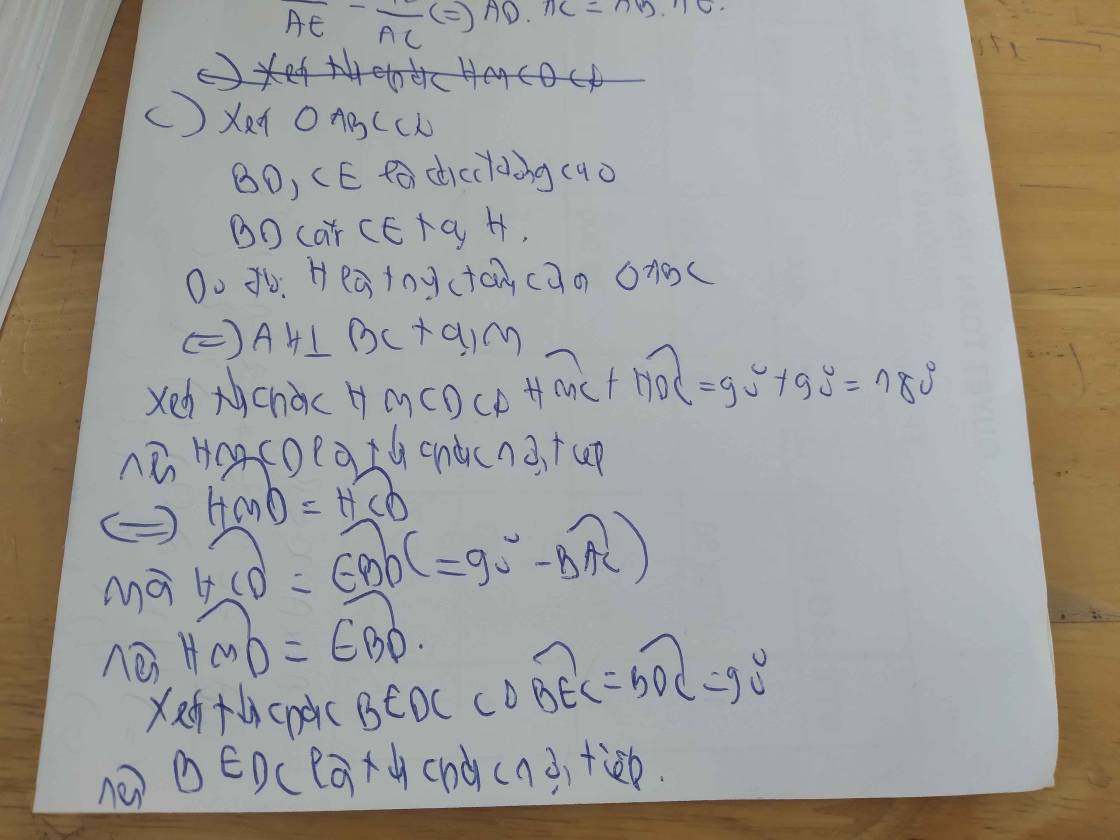 AE AC (=) AD. AC = AB. AE.
c) Xét tứ giác HMCD có
c) Xét Δ ABC có
BD, CE là các đường cao
BD cắt CE tại H.
Do đó: H là trực tâm của Δ ABC
(=) AH ⊥ BC tại M
Xét tứ giác HMCD có HMC + HDC = 90° + 90° = 180°
nên HMCD là tứ giác nội tiếp
(=) HMD = HCD
mà HCD = EBD (= 90° - BAC)
nên HMD = EBD.
Xét tứ giác BEDC có BEC = BDC = 90°
nên BEDC là tứ giác nội tiếp.